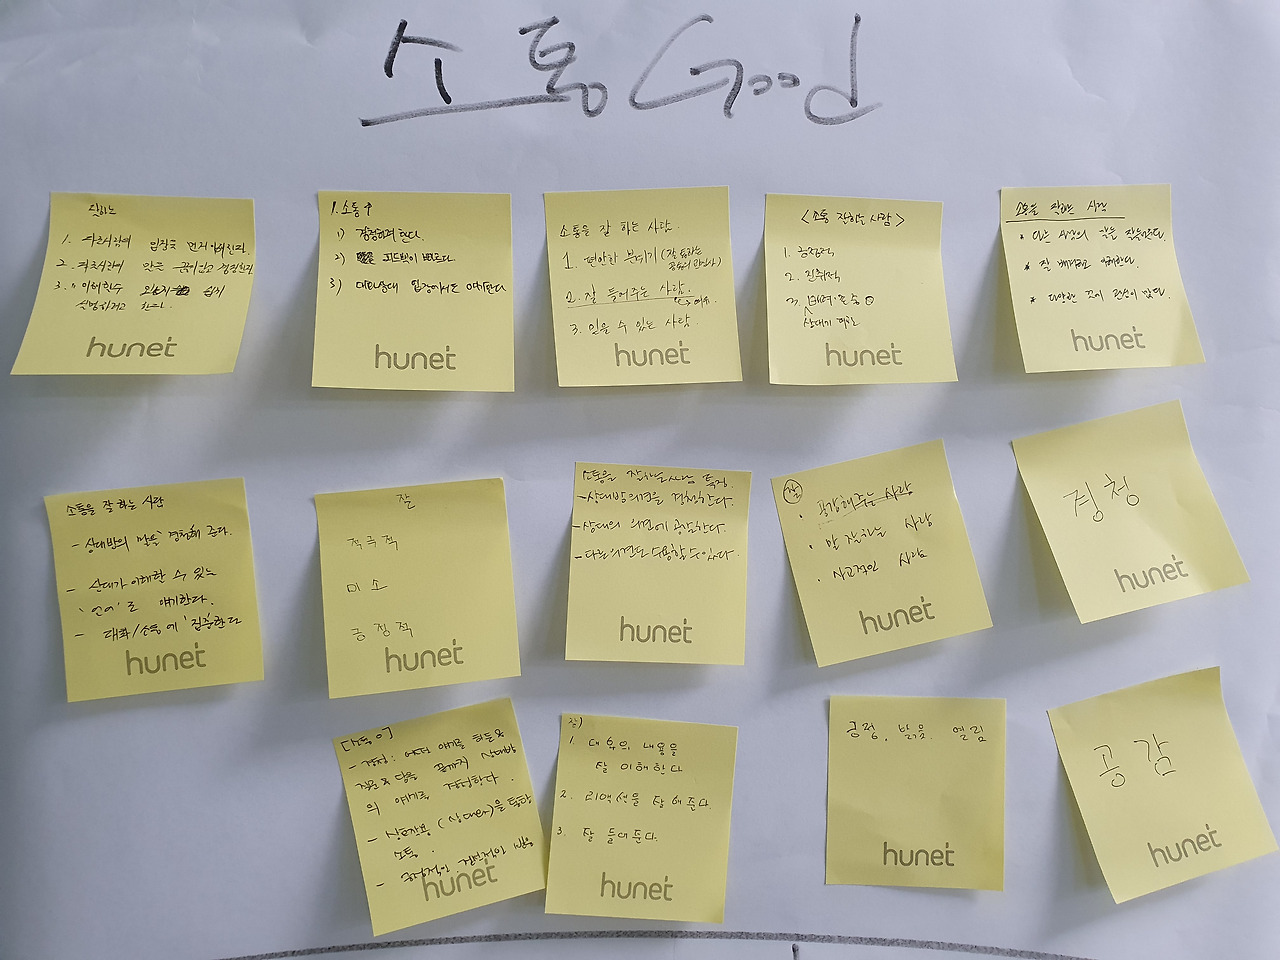 소통 Good
잘하는
1. 다른사람의 입장을 먼저
2. 다른사람의 말을 끊지않고
3. 쉽게
설명하려고 한다.
hunet
1. 소통↑
1) 경청하려 한다.
2) 피드백이 빠르다.
3) 대화상대 입장에서도 생각한다
hunet
소통을 잘 하는 사람.
1. 편안한 분위기 (잘
2. 잘 들어주는 사람.
3. 믿을 수 있는 사람.
hunet
<소통 잘하는 사람>
1. 긍정적
2. 진취적
3. 배려·존중
상대가
hunet
소통을 잘하는 사람
• 다른 사람의 말을
* 잘 이해한다.
* 다양한 관심이 많다.
hunet
소통을 잘 하는 사람
- 상대방의 말을 경청해 준다.
- 상대가 이해할 수 있는
'언어'로 얘기한다.
- 대화/소통에 '집중'한다
hunet
잘
적극적
미소
긍정적
hunet
소통을 잘하는 사람 특징.
- 상대방의견을 경청한다.
- 상대의 의견에 공감한다.
- 다른의견도 수용할 수 있다.
hunet
잘
• 공감해주는 사람
• 말 잘하는 사람
• 사교적인 사람
hunet
경청
hunet
[소통 O]
- 경청:
상대방
의 얘기를 경청한다.
- 상호작용 (상대와)을 통한
소통.
- 긍정적인 반응
hunet
잘)
1. 대화의 내용을
잘 이해한다
2. 리액션을 잘 해준다.
3. 잘 들어준다.
hunet
긍정, 밝음, 열림
hunet
공감
hunet